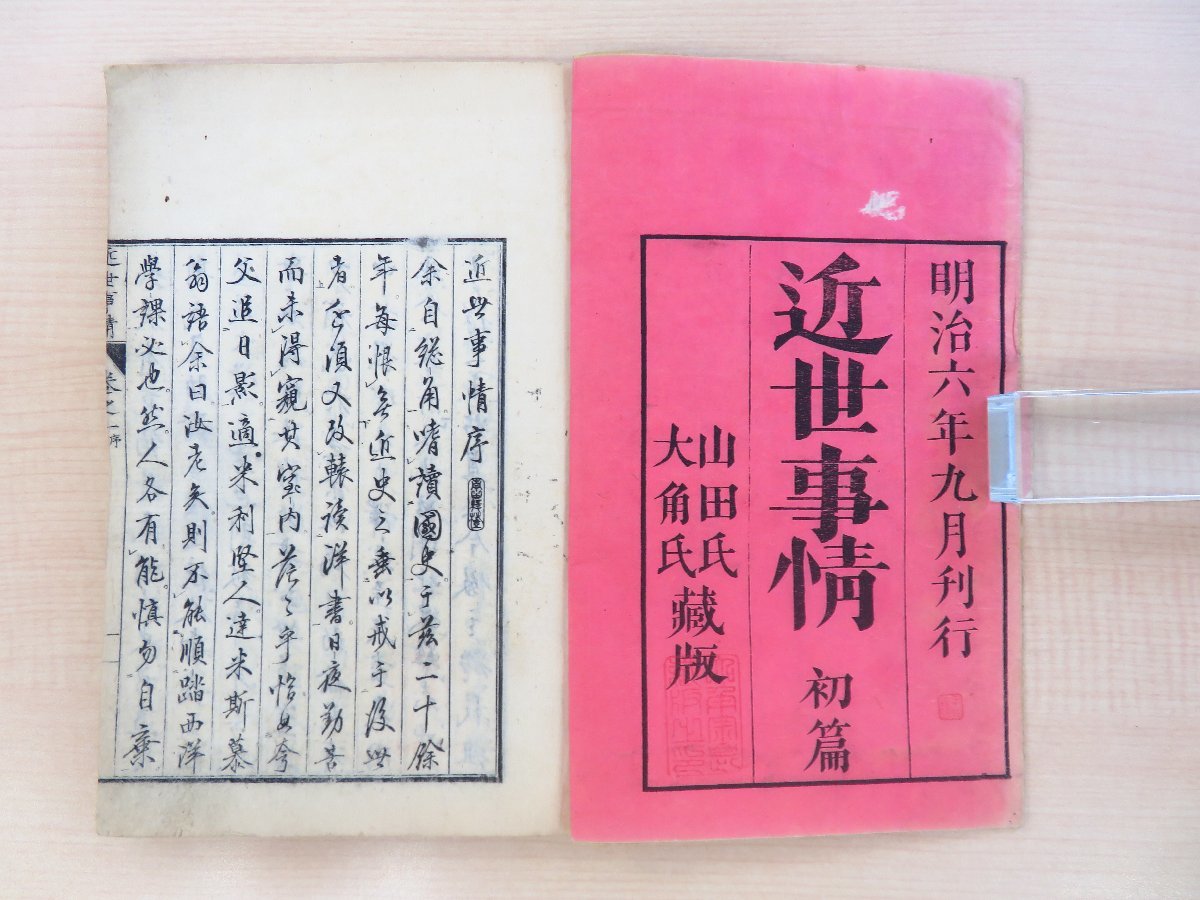 明治六年九月刊行
近世事情 初篇
山田氏
大角氏
藏版
近世事情序
余自總角嗜讀國史于茲二十餘
年每恨無近史之垂以戒于後世
者近須又改轅讀洋書日夜勤苦
而未得窺其室内茫々乎恰如夸
父追日影適米利堅人達米斯慕
翁語余曰汝老矣則不能順踏西洋
學課必也然人各有能慎勿自棄
近世事情 卷之一 序